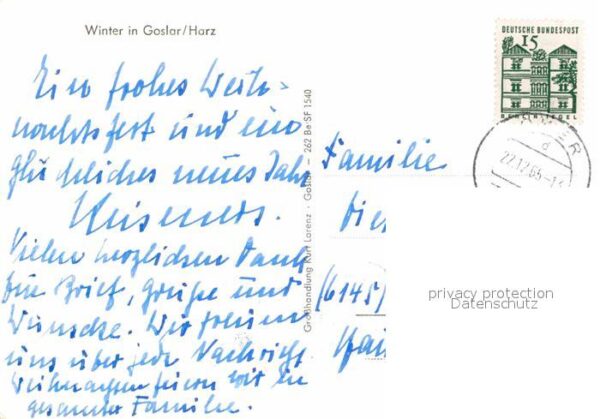 Winter in Goslar/Harz
Ein frohes Weih-
nachtsfest und ein
glückliches neues Jahr
Vielen herzlichen Dank
für Brief, Grüße und
Wünsche. Wir freuen
uns über jede Nachricht
Weihnachten feiern wir in
gesamter Familie.
Großhandlung Kurt Lorenz · Goslar — 262 Be SF 1540
DEUTSCHE BUNDESPOST
15
TEGEL
22.12.65-1
d
Familie
(6145)
privacy protection
Datenschutz